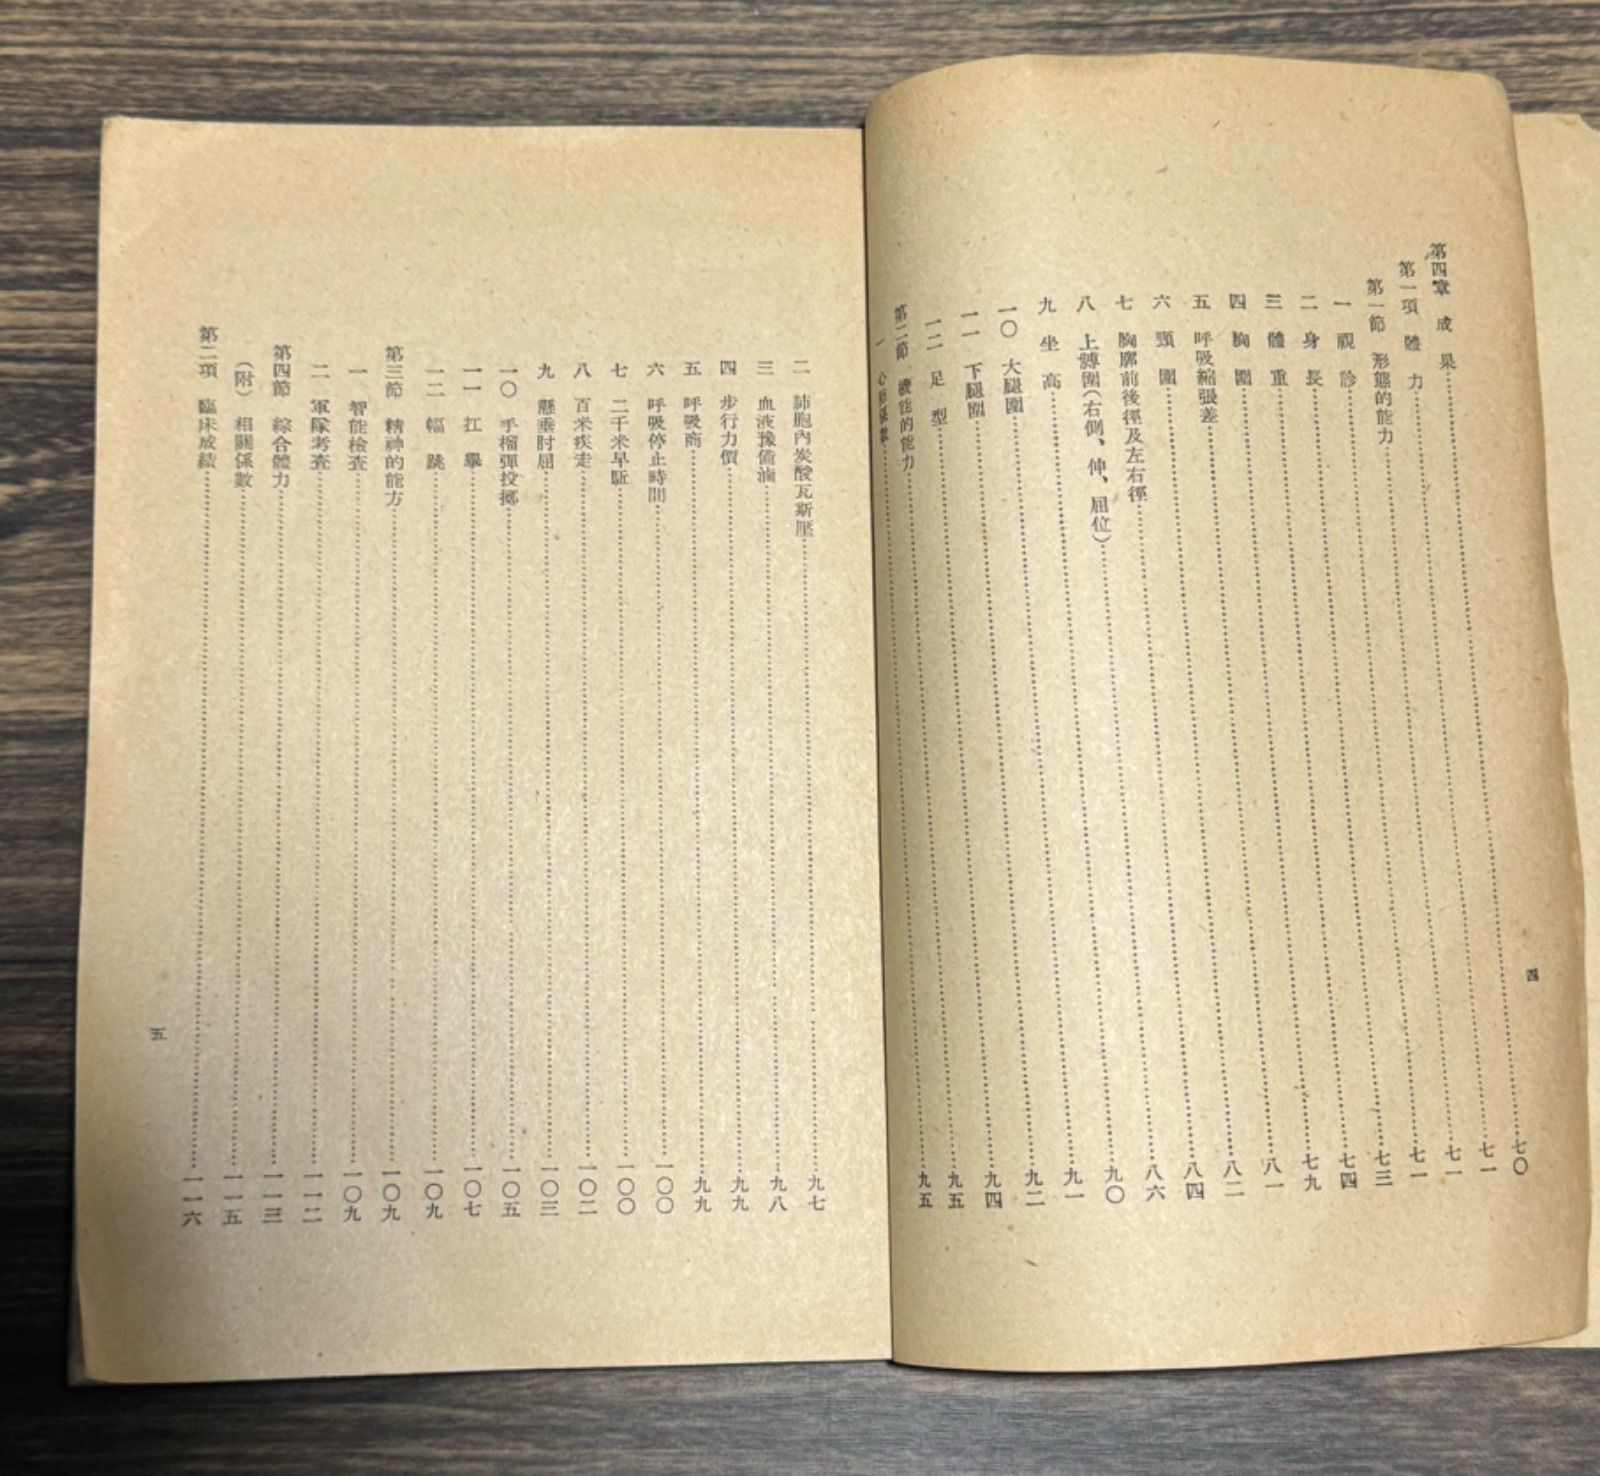 第四章 成果……七〇
第一項 體力……七一
第一節 形態的能力……七一
一 視診……七一
二 身長……七三
三 體重……七四
四 胸圍……七九
五 呼吸縮張差……八一
六 頸圍……八二
七 胸廓前後徑及左右徑……八四
八 上膊圍(右側、伸、屈位)……八六
九 坐高……九〇
一〇 大腿圍……九一
一一 下腿圍……九二
一二 足型……九四
第二節 機能的能力……九五
一 心肺係數……九五
四
二 肺胞內炭酸瓦斯壓……九七
三 血液豫備滷……九八
四 步行力價……九九
五 呼吸商……九九
六 呼吸停止時間……一〇〇
七 二千米早駈……一〇〇
八 百米疾走……一〇二
九 懸垂肘屈……一〇三
一〇 手榴彈投擲……一〇五
一一 扛擧……一〇七
一二 幅跳……一〇九
第三節 精神的能方……一〇九
一 智能檢査……一〇九
二 軍隊考査……一一二
第四節 綜合體力……一一三
(附) 相關係數……一一五
第二項 臨床成績……一一六
五